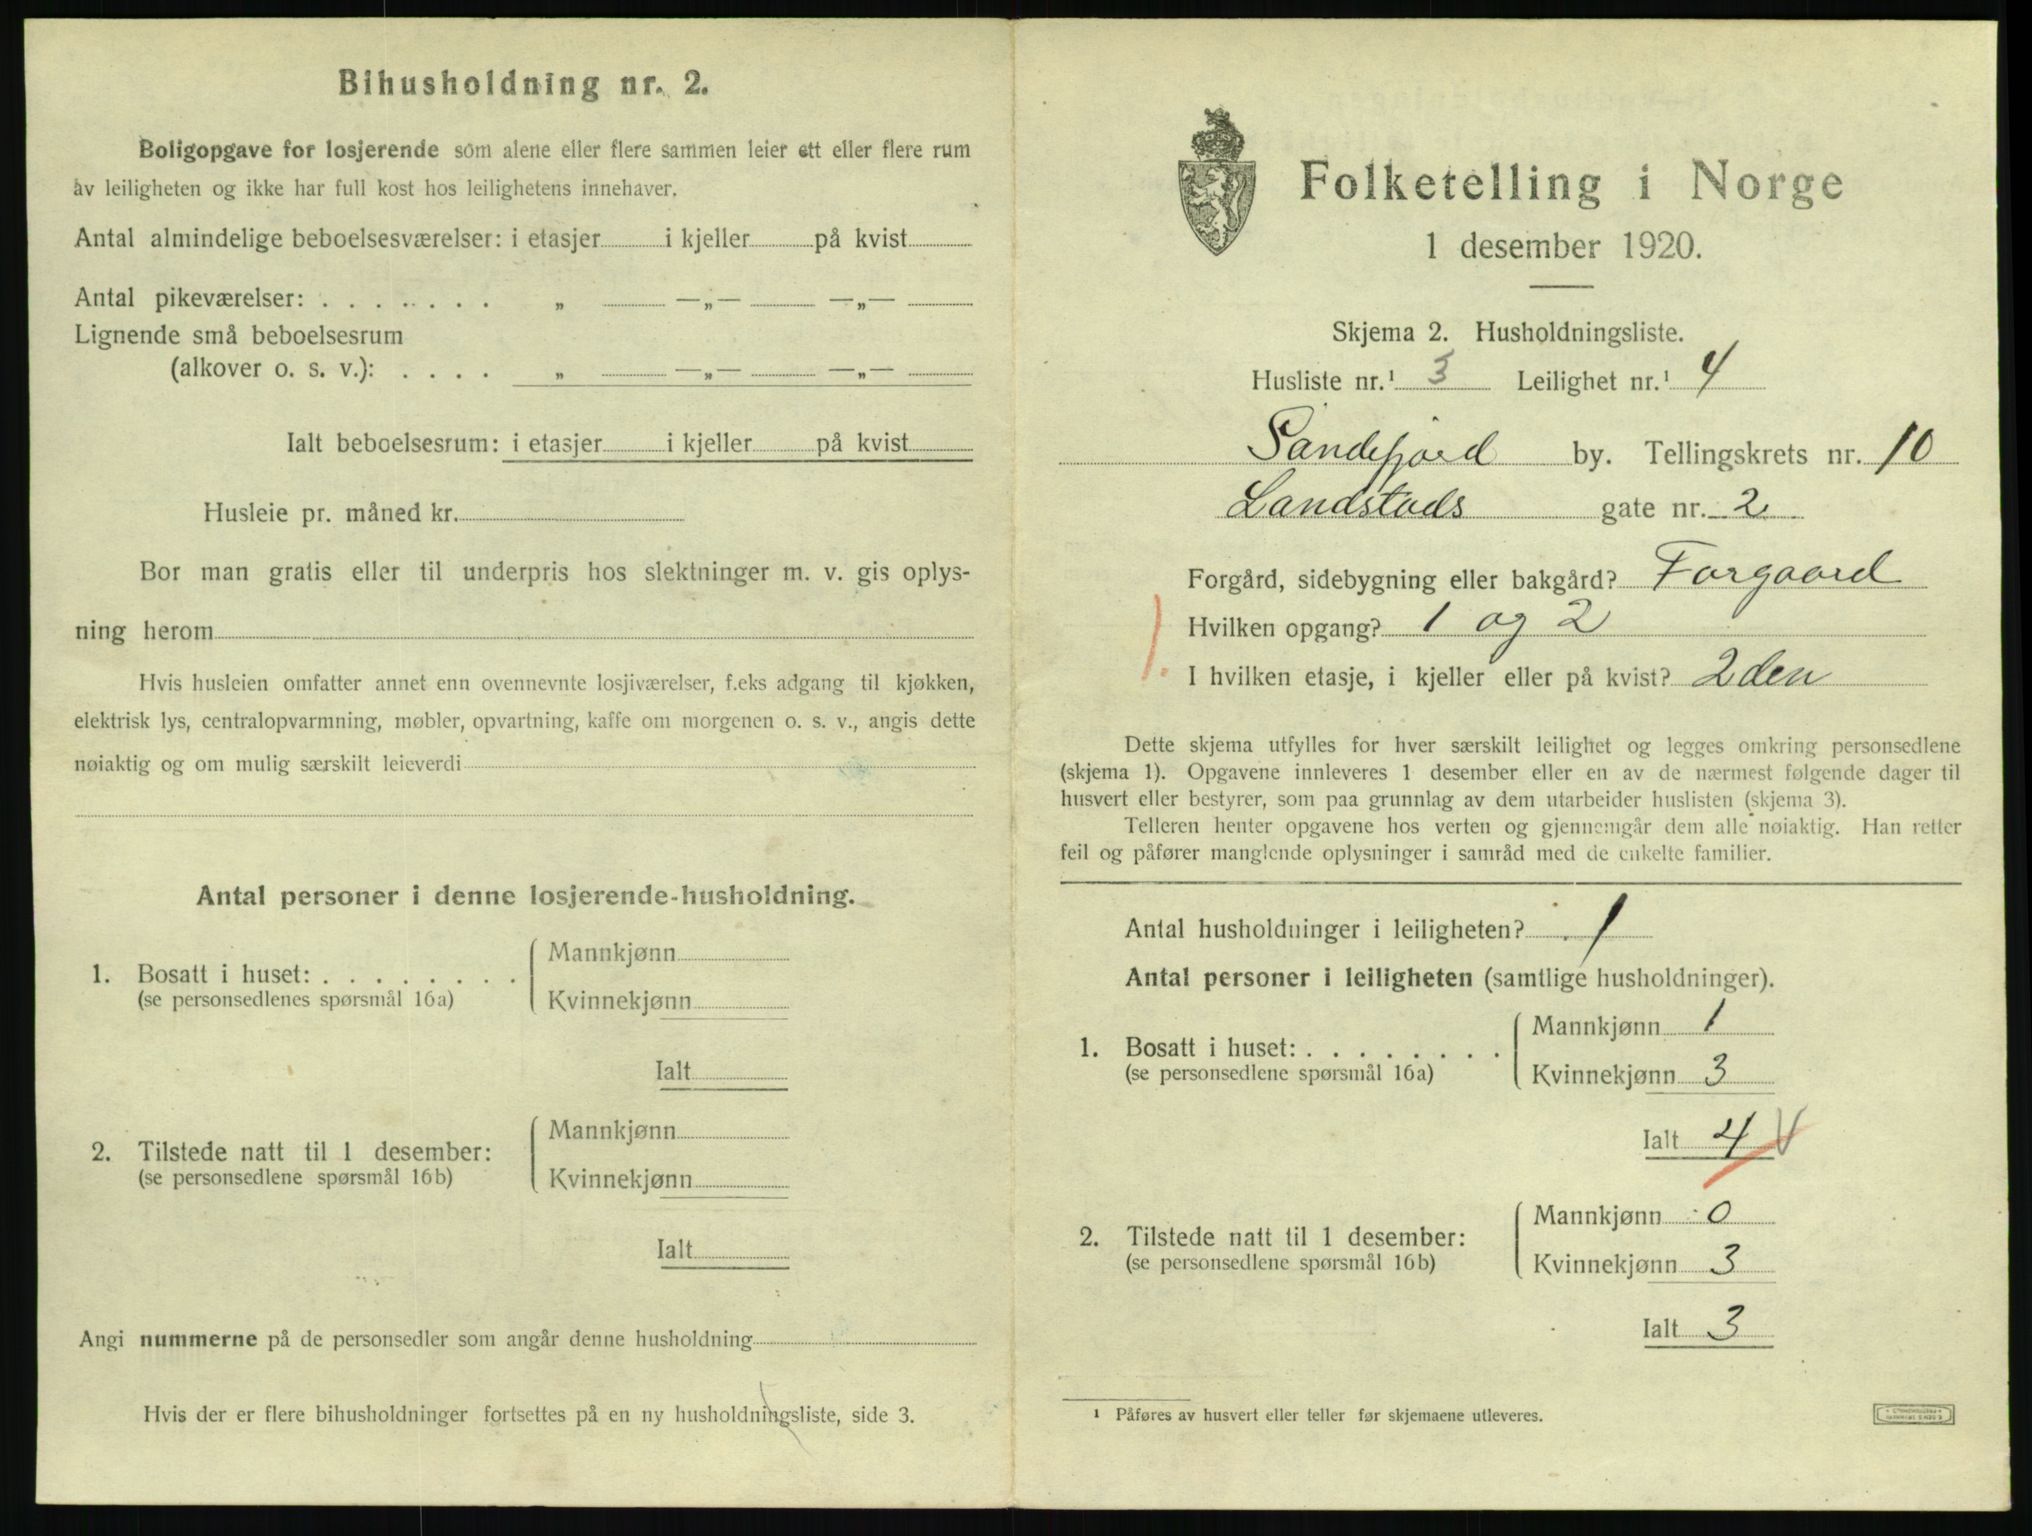 Bihusholdning nr. 2.
Boligopgave for losjerende som alene eller flere sammen leier ett eller flere rum
av leiligheten og ikke har full kost hos leilighetens innehaver.
Antal almindelige beboelsesværelser: i etasjer i kjeller på kvist
Antal pikeværelser: . . . . . . . „ —„— —„—
Lignende små beboelsesrum
(alkover o. s. v.): . . . . „ —„— —„—
Ialt beboelsesrum: i etasjer i kjeller på kvist
Husleie pr. måned kr.
Bor man gratis eller til underpris hos slektninger m. v. gis oplys-
ning herom
Hvis husleien omfatter annet enn ovennevnte losjiværelser, f.eks adgang til kjøkken,
elektrisk lys, centralopvarmning, møbler, opvartning, kaffe om morgenen o. s. v., angis dette
nøiaktig og om mulig særskilt leieverdi
Antal personer i denne losjerende-husholdning.
1. Bosatt i huset: . . . . . . . .
(se personsedlenes spørsmål 16a)
Mannkjønn
Kvinnekjønn
Ialt
2. Tilstede natt til 1 desember:
(se personsedlene spørsmål 16b)
Mannkjønn
Kvinnekjønn
Ialt
Angi nummerne på de personsedler som angår denne husholdning
Hvis der er flere bihusholdninger fortsettes på en ny husholdningsliste, side 3.
Folketelling i Norge
1 desember 1920.
Skjema 2. Husholdningsliste.
Husliste nr.¹ 3 Leilighet nr.¹ 4
Sandefjord by. Tellingskrets nr. 10
Landstads gate nr. 2
Forgård, sidebygning eller bakgård? Forgaard
Hvilken opgang? 1 og 2
I hvilken etasje, i kjeller eller på kvist? 2den
Dette skjema utfylles for hver særskilt leilighet og legges omkring personsedlene
(skjema 1). Opgavene innleveres 1 desember eller en av de nærmest følgende dager til
husvert eller bestyrer, som paa grunnlag av dem utarbeider huslisten (skjema 3).
Telleren henter opgavene hos verten og gjennemgår dem alle nøiaktig. Han retter
feil og påfører manglende oplysninger i samråd med de enkelte familier.
Antal husholdninger i leiligheten? 1
Antal personer i leiligheten (samtlige husholdninger).
1. Bosatt i huset: . . . . . . . .
(se personsedlene spørsmål 16a)
Mannkjønn 1
Kvinnekjønn 3
Ialt 4
2. Tilstede natt til 1 desember:
(se personsedlene spørsmål 16b)
Mannkjønn 0
Kvinnekjønn 3
Ialt 3
¹ Påføres av husvert eller teller før skjemaene utleveres.